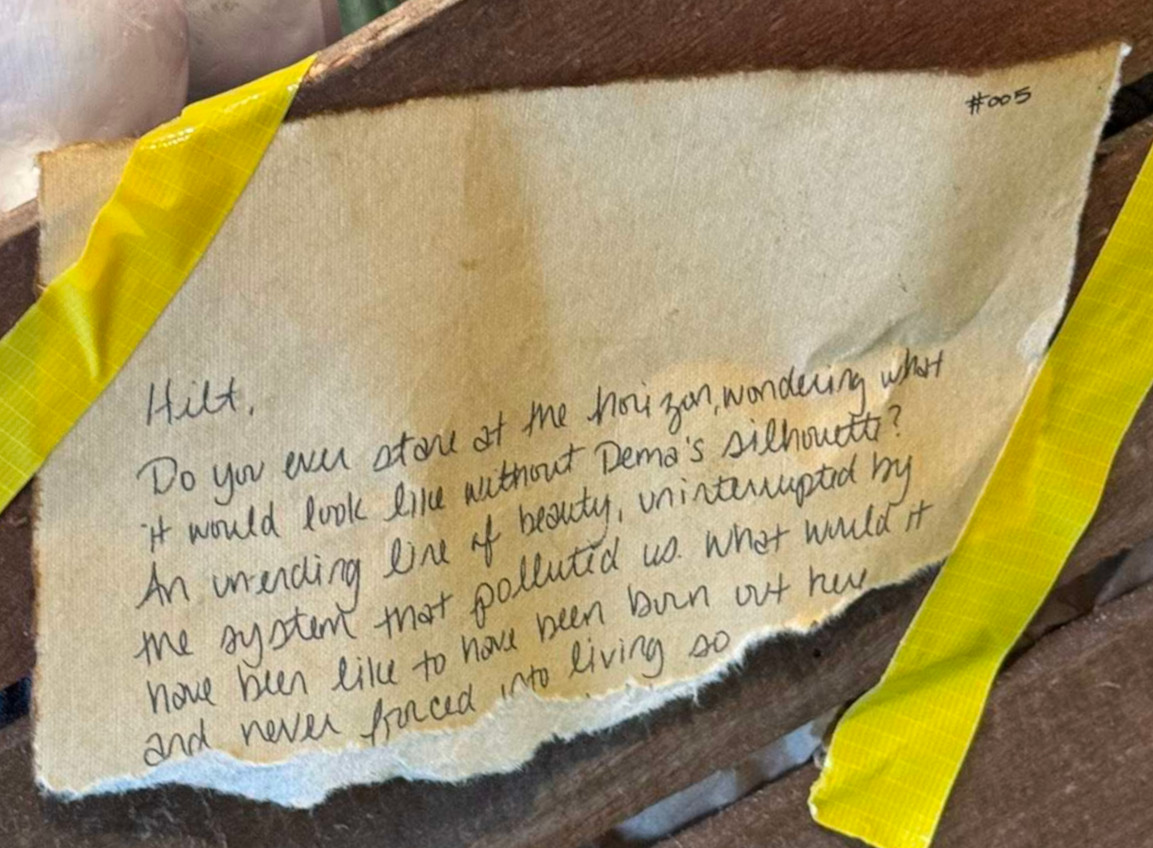 #005
Hilt,
Do you ever stare at the horizon, wondering what
it would look like without Dema's silhouette?
An unending line of beauty, uninterrupted by
the system that polluted us. What would it
have been like to have been born out here
and never forced into living so